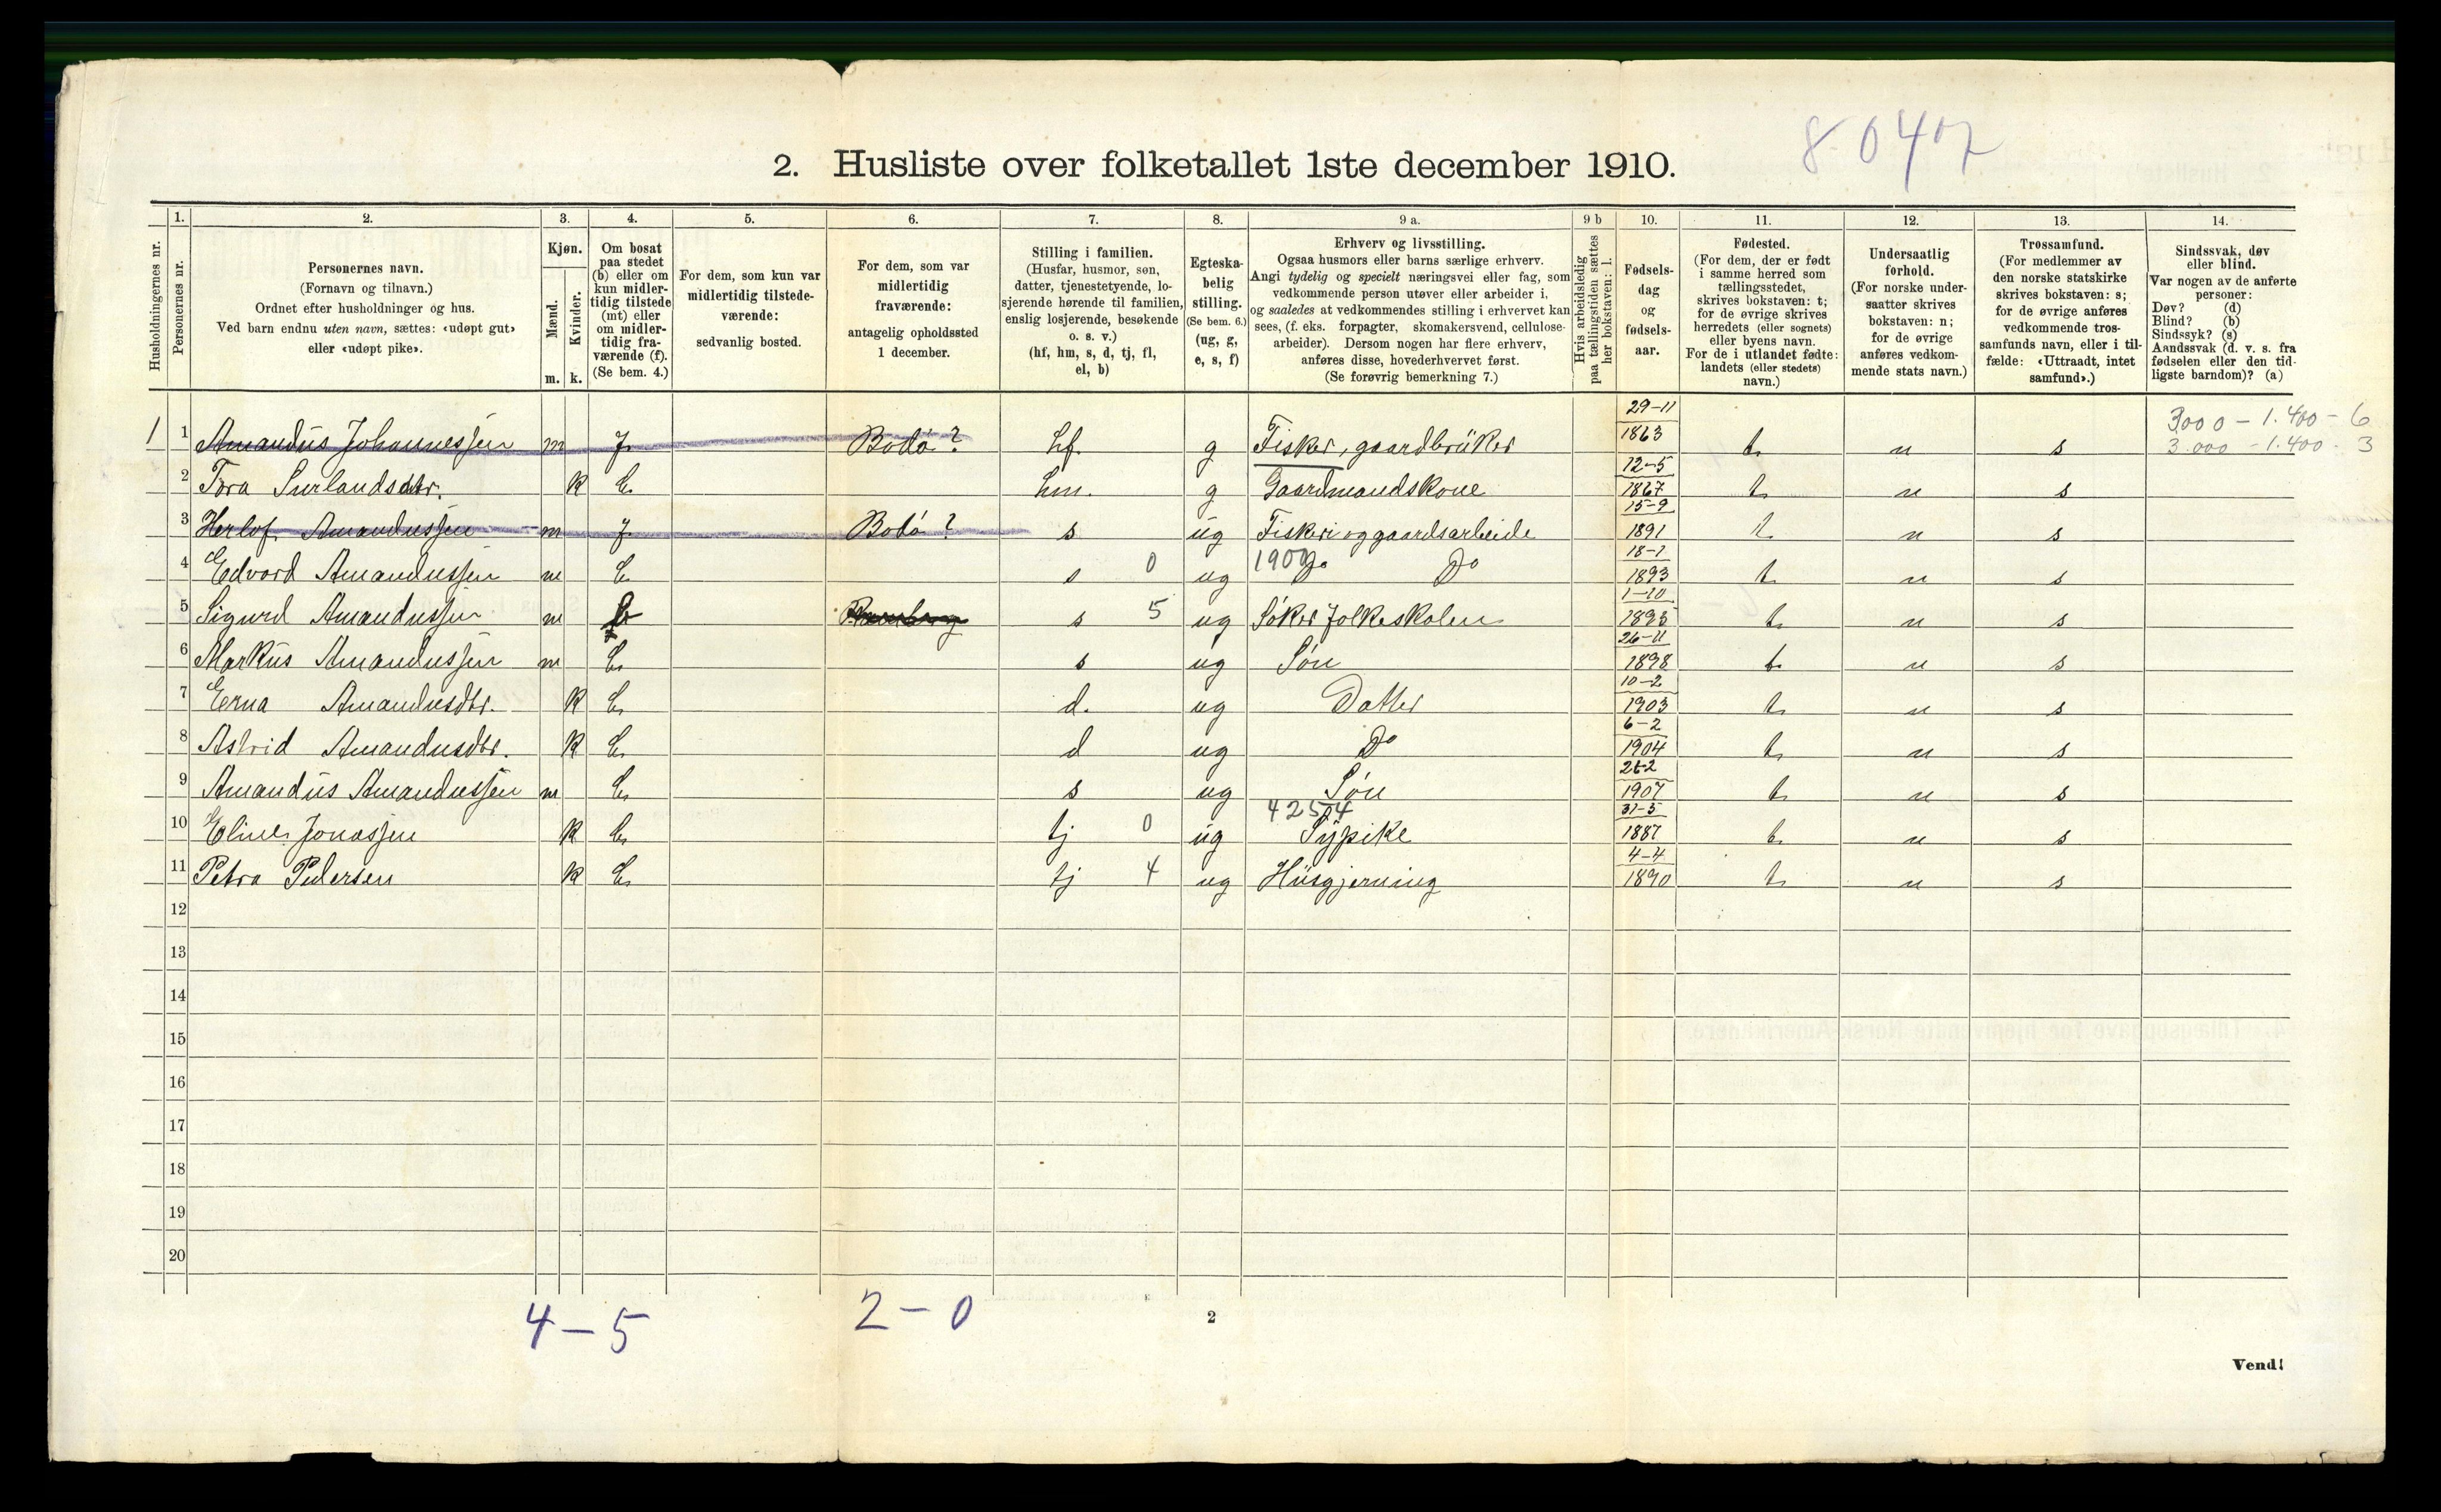 8 0407
2. Husliste over folketallet 1ste december 1910.
1. 2. 3. 4. 5. 6. 7. 8. 9 a. 9 b 10. 11. 12. 13. 14.
Husholdningernes nr.
Personernes nr.
Personernes navn.
(Fornavn og tilnavn.)
Ordnet efter husholdninger og hus.
Ved barn endnu uten navn, sættes: «udøpt gut»
eller «udøpt pike».
Kjøn.
Mænd.
Kvinder.
m. k.
Om bosat
paa stedet
(b) eller om
kun midler-
tidig tilstede
(mt) eller
om midler-
tidig fra-
værende (f).
(Se bem. 4.)
For dem, som kun var
midlertidig tilstede-
værende:
sedvanlig bosted.
For dem, som var
midlertidig
fraværende:
antagelig opholdssted
1 december.
Stilling i familien.
(Husfar, husmor, søn,
datter, tjenestetyende, lo-
sjerende hørende til familien,
enslig losjerende, besøkende
o. s. v.)
(hf, hm, s, d, tj, fl,
el, b)
Egteska-
belig
stilling.
(Se bem. 6.)
(ug, g,
e, s, f)
Erhverv og livsstilling.
Ogsaa husmors eller barns særlige erhverv.
Angi tydelig og specielt næringsvei eller fag, som
vedkommende person utøver eller arbeider i,
og saaledes at vedkommendes stilling i erhvervet kan
sees, (f. eks. forpagter, skomakersvend, cellulose-
arbeider). Dersom nogen har flere erhverv,
anføres disse, hovederhvervet først.
(Se forøvrig bemerkning 7.)
Hvis arbeidsledig
paa tællingstiden sættes
her bokstaven: l.
Fødsels-
dag
og
fødsels-
aar.
Fødested.
(For dem, der er født
i samme herred som
tællingsstedet,
skrives bokstaven: t;
for de øvrige skrives
herredets (eller sognets)
eller byens navn.
For de i utlandet fødte:
landets (eller stedets)
navn.)
Undersaatlig
forhold.
(For norske under-
saatter skrives
bokstaven: n;
for de øvrige
anføres vedkom-
mende stats navn.)
Trossamfund.
(For medlemmer av
den norske statskirke
skrives bokstaven: s;
for de øvrige anføres
vedkommende tros-
samfunds navn, eller i til-
fælde: «Uttraadt, intet
samfund».)
Sindssvak, døv
eller blind.
Var nogen av de anførte
personer:
Døv? (d)
Blind? (b)
Sindssyk? (s)
Aandssvak (d. v. s. fra
fødselen eller den tid-
ligste barndom)? (a)
3000 - 1.400 - 6
1 1 Amandus Johannesjen m f Bodø? hf. g Fisker, gaardbrüker 29-11 1863 t n s 3.000 - 1.400 - 3
2 Tora dtr. k b hm. g Gaardmandskone 12-5 1867 t n s
3 Herlof Amandusjen m f Bodø? s ug Fiskeri og gaardsarbeide 15-9 1891 t n s
4 Edvard Amandusjen m b s 0 ug 1909 Do Do 18-1 1893 t n s
5 Sigurd Amandusjen m b s 5 ug Søker folkeskolen 1-10 1895 t n s
6 Markus Amandusjen m b s ug Søn 26-11 1898 t n s
7 Erna Amandusdtr. k b d. ug Datter 10-2 1903 t n s
8 Astrid Amandusdtr. k b d ug Do 6-2 1904 t n s
9 Amandus Amandusjen m b s ug Søn 1907 t n s
10 Eline Jonasjen k b tj 0 ug 42574 Sypike 31-5 1887 t n s
11 Petra Pedersen k b tj 4 ug Hüsgjerning 4-4 1890 t n s
12
13
14
15
16
17
18
19
20
4 - 5 2 - 0
2
Vend!